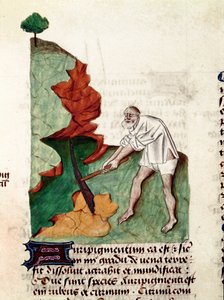 Auripigmentum ca est et sic
gradu de uena terre
sit dissoluit attrahit et mundificat
Due sunt species Auripigmenti est
rubeus et citrinum. Citrinum com